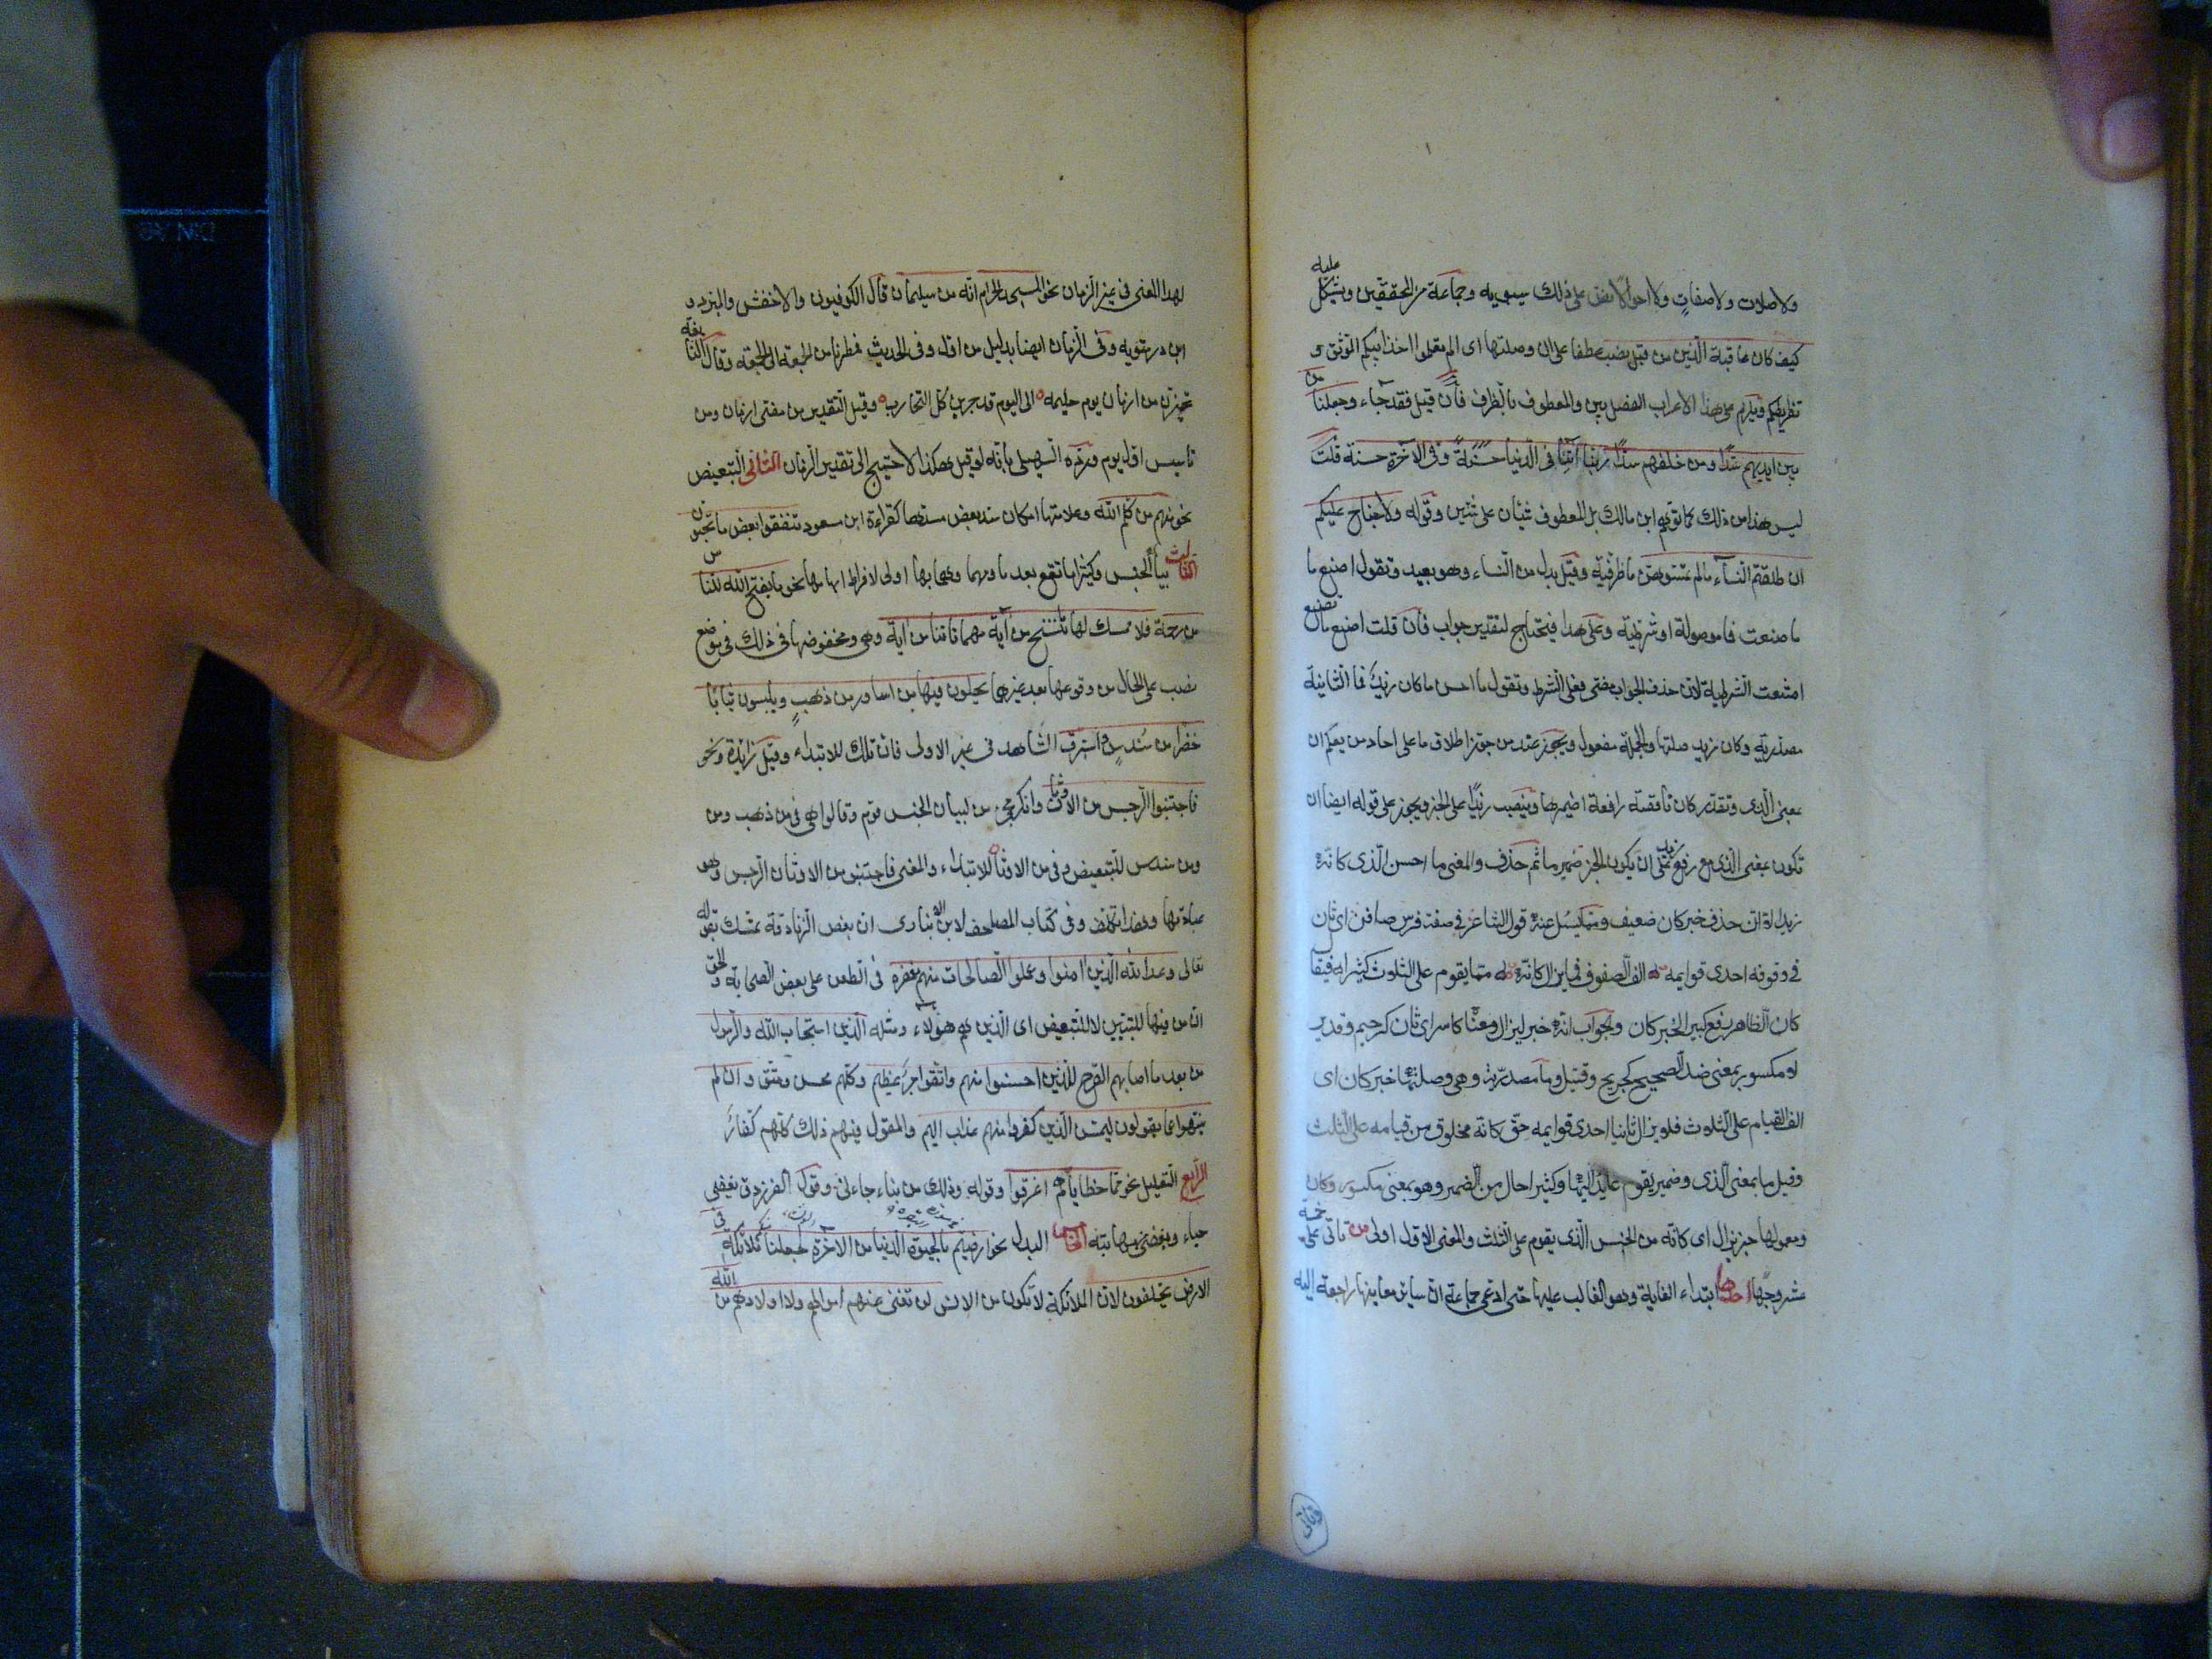 ولا صلات ولا صفات ولا احوالا نص على ذلك سيبويه وجماعة من المحققين ويشكل عليه
كيف كان عاقبة الذين من قبل نصب عطفا على ان وصلتها اى الم تعلموا اخذ ابيكم الموثق و
تفريطكم ويلزم على هذا الاعراب الفصل بين والمعطوف بالظرف فأن قيل فقد جاء وجعلنا من
بين ايديهم سدا ومن خلفهم سدا ربنا آتنا فى الدنيا حسنة وفى الآخرة حسنة قلت
ليس هذا من ذلك كما توهم ابن مالك بل المعطوف شيئان على شيئين وقوله ولا جناح عليكم
ان طلقتم النساء ما لم تمسوهن ما ظرفية وقيل بدل من النساء وهو بعيد وتقول اصنع ما
ما صنعت فما موصولة او شرطية وعلى هذا فيحتاج لتقدير جواب فان قلت اصنع ما تصنع
امتنعت الشرطية لان حذف الجواب مضى فعل الشرط وتقول ما احسن ما كان زيد فما الثانية
مصدرية وكان زيد صلتها والجملة مفعول ويجوز عند من جوز اطلاق ما على احاد من يعلم ان
بمعنى الذى وتقدر كان ناقصة رافعة لضميرها وينصب زيدا على الخبر ويجوز على قوله ايضا ان
تكون بمعنى الذى مع رفع زيد على ان يكون الخبر ضمير ما ثم حذف والمعنى ما احسن الذى كانه
زيد الا ان حذف خبر كان ضعيف ومما يسئل عنه قول الشاعر فى صفة فرس صافن اى ثان
فى وقوفه احدى قوايمه الف الصفون فما يزال كانه مما يقوم على الثلوث كسيرا فيقال
كان الظاهر رفع كسير الخبر كان والجواب انه خبر ليزال ومعناه كاسر اى ثان كرحيم وقدير
لا مكسور بمعنى ضد الصحيح كجريح وقتيل وما مصدرية وهى وصلتها خبر كان اى
الف القيام على الثلوث فلا يزال ثانيا احدى قوايمه حتى كانه مخلوق من قيامه على الثلث
وقيل ما بمعنى الذى وضمير يقوم عايد اليها وكسيرا حال من الضمير وهو بمعنى مكسور وكان
ومعمولها خبر يزال اى كانه من الجنس الذى يقوم على الثلث والمعنى الاول اولى من تاتى على خمسة
عشر وجها احدها ابتداء الغاية وهو الغالب عليها حتى ادعى جماعة ان ساير معانيها راجعة اليه
لهذا المعنى فى غير الزمان نحو المسجد الحرام انه من سليمان قال الكوفيون والاخفش والمبرد و
ابن درستويه وفى الزمان ايضا بدليل من اول وفى الحديث فمطرنا من الجمعة الى الجمعة وقال النابغة
تخيرن من ازمان يوم حليمة الى اليوم قد جربن كل التجارب وقيل التقدير من مضى ازمان ومن
تاسيس اول يوم ورده السهيلى بانه لو قيل هكذا لاحتيج الى تقدير الزمان الثانى التبعيض
نحو منهم من كلم الله وعلامتها امكان سد بعض مسدها كقراءة ابن مسعود تنفقوا بعض ما تحبون
الثالث بيان الجنس وكثيرا ما تقع بعد ما ومهما وهما بها اولى لافراط ابهامها نحو ما يفتح الله للناس
من رحمة فلا ممسك لها ما ننسخ من آية مهما تاتنا من آية وهى ومخفوضها فى ذلك فى موضع
نصب على الحال من وقوعها بعد غيرهما يحلون فيها من اساور من ذهب ويلبسون ثيابا
خضرا من سندس واستبرق الشاهد فى غير الاولى فان تلك للابتداء وقيل زايدة ونحو
فاجتنبوا الرجس من الاوثان وانكر مجئ من لبيان الجنس قوم وقالوا هى فى من ذهب ومن
ومن سندس للتبعيض وفى من الاوثان للابتداء والمعنى فاجتنبوا من الاوثان الرجس وهو
عبادتها وهذا تكلف وفى كتاب المصاحف لابن الانبارى ان بعض الزنادقة تمسك بقوله
تعالى وعد الله الذين امنوا وعملوا الصالحات منهم مغفرة فى الطعن على بعض الصحابة والحق
ان من فيها للتبيين لا للتبعيض اى الذين هم هؤلاء ومثله الذين استجاب الله والرسول
من بعد ما اصابهم القرح للذين احسنوا منهم واتقوا اجر عظيم وكلهم محسن ومتق وان لم
ينتهوا عما يقولون ليمسن الذين كفروا منهم عذاب اليم والمقول فيهم ذلك كلهم كفار
الرابع التعليل نحو مما خطاياهم اغرقوا وقوله وذلك من نباء جاءنى وقول الفرزدق يغضى
حياء ويغضى من مهابته الخامس البدل نحو ارضيتم بالحيوة الدنيا من الآخرة لجعلنا منكم ملائكة فى
الارض يخلفون لان الملائكة لا تكون من الانس لن تغنى عنهم اموالهم ولا اولادهم من الله